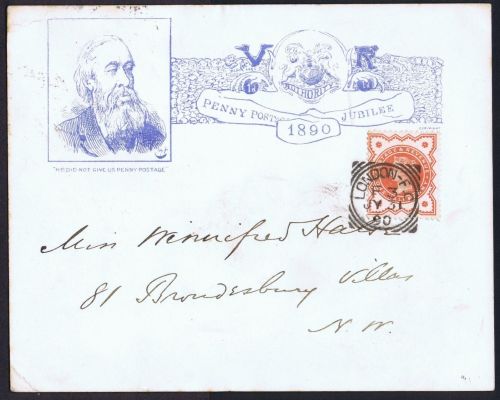 V R
1d 1d
AUTHORITY
PENNY POSTAGE JUBILEE
1890
COPYRIGHT
"HE DID NOT GIVE US PENNY POSTAGE"
LONDON-F.C
3
JY 31
90
Miss Winnifred
81 Brondesbury Villas
N.W.